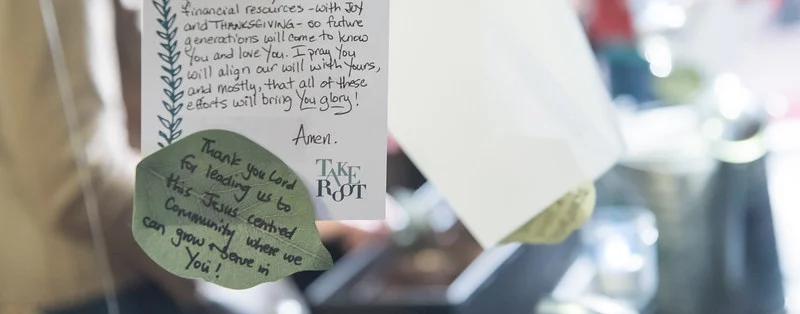 financial resources - with JOY
and THANKSGIVING - so future
generations will come to know
You and love You. I pray You
will align our will with Yours,
and mostly, that all of these
efforts will bring You glory!
Amen.
TAKE
ROOT
Thank you Lord
for leading us to
this Jesus centred
Community where we
can grow + serve in
You!